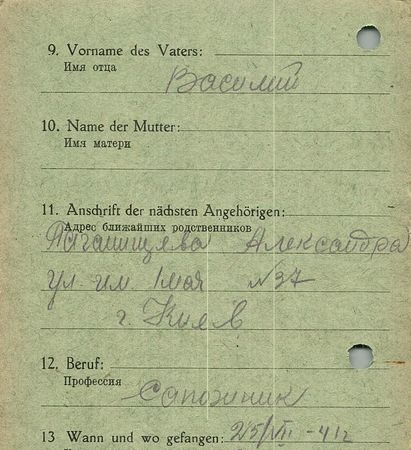 9. Vorname des Vaters:
Имя отца
Василий
10. Name der Mutter:
Имя матери
11. Anschrift der nächsten Angehörigen:
Адрес ближайших родственников
Александра
ул. им. 1 мая №37
г. Киев
12. Beruf:
Профессия
Сапожник
13 Wann und wo gefangen: